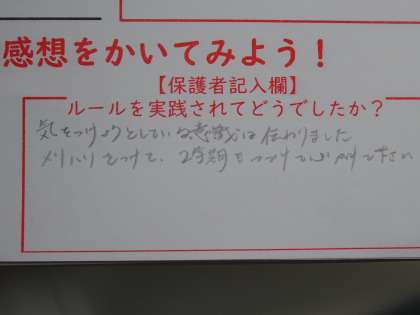 感想をかいてみよう！
【保護者記入欄】
ルールを実践されてどうでしたか？
気をつけようとしている意識は伝わりました
メリハリをつけて、2学期もつづけて 下さい